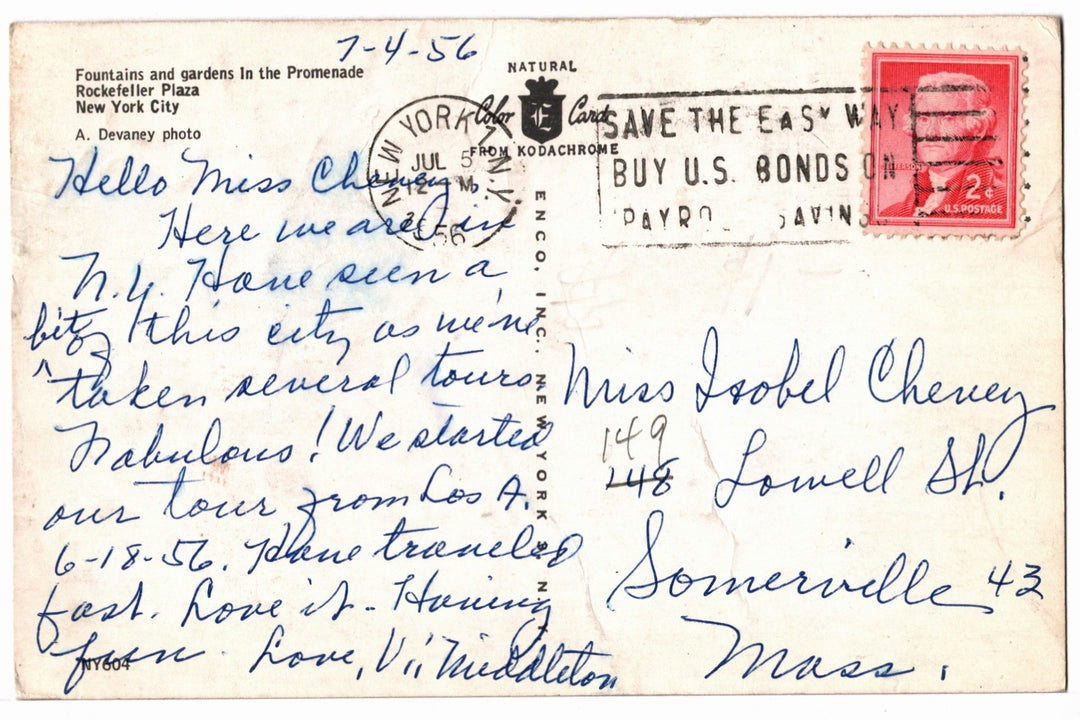 7-4-56
Fountains and gardens In the Promenade
Rockefeller Plaza
New York City
A. Devaney photo
NATURAL
Color E Card
FROM KODACHROME
NEW YORK, N.Y.
JUL 5
12 M
1956
SAVE THE EASY WAY
BUY U.S. BONDS ON
PAYRO SAVIN
2¢
U.S. POSTAGE
Hello Miss Cheney,
Here we are in
N.Y. Have seen a
bit of this city as we've
taken several tours.
Fabulous! We started
our tour from Los A.
6-18-56. Have traveled
fast. Love it - Having
fun. Love, Vi Middleton
NY604
ENCO, INC. NEW YORK 9, N.Y.
Miss Isobel Cheney
149
148 Lowell St.
Somerville 43
Mass.